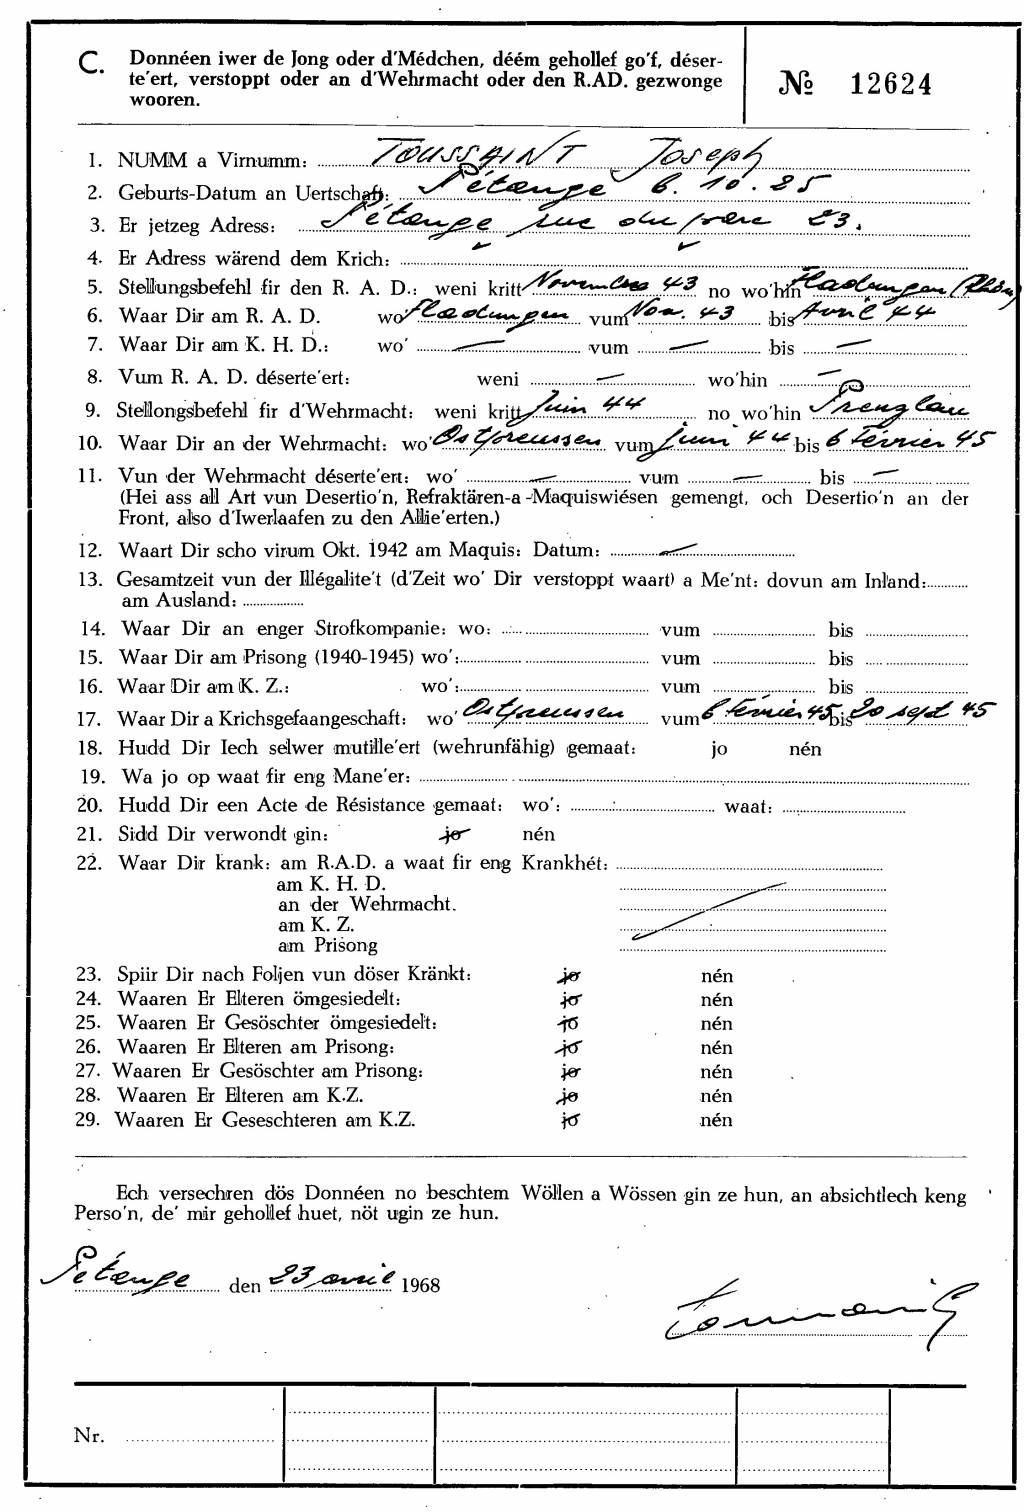 C. Donnéen iwer de Jong oder d'Médchen, déém gehollef go'f, déser-
te'ert, verstoppt oder an d'Wehrmacht oder den R.AD. gezwonge
wooren.
№ 12624
1. NUMM a Virnumm: TOUSSAINT Joseph
2. Geburts-Datum an Uertschaft: Pétange 6. 10. 25
3. Er jetzeg Adress: Pétange rue du parc 23.
4. Er Adress wärend dem Krich:
5. Stellungsbefehl fir den R. A. D.: weni kritt Novembre 43 no wo'hin Fladungen (Rhön)
6. Waar Dir am R. A. D. wo' Fladungen vum Nov. 43 bis Avril 44
7. Waar Dir am K. H. D.: wo' — vum — bis —
8. Vum R. A. D. déserte'ert: weni — wo'hin —
9. Stellongsbefehl fir d'Wehrmacht: weni kritt Juin 44 no wo'hin Prenzlau
10. Waar Dir an der Wehrmacht: wo' Ostpreussen vum Juin 44 bis 6 Février 45
11. Vun der Wehrmacht déserte'ert: wo' — vum — bis —
(Hei ass all Art vun Desertio'n, Refraktären-a-Maquiswiésen gemengt, och Desertio'n an der
Front, also d'Iwerlaafen zu den Allie'erten.)
12. Waart Dir scho virum Okt. 1942 am Maquis: Datum: —
13. Gesamtzeit vun der Illégalite't (d'Zeit wo' Dir verstoppt waart) a Me'nt: dovun am Inland:
am Ausland:
14. Waar Dir an enger Strofkompanie: wo: vum bis
15. Waar Dir am Prisong (1940-1945) wo': vum bis
16. Waar Dir am K. Z.: wo': vum bis
17. Waar Dir a Krichsgefaangeschaft: wo' Ostpreussen vum 6 Février 45 bis 20 sept 45
18. Hudd Dir Iech selwer mutille'ert (wehrunfähig) gemaat: jo nén
19. Wa jo op waat fir eng Mane'er:
20. Hudd Dir een Acte de Résistance gemaat: wo': waat:
21. Sidd Dir verwondt gin: jo nén
22. Waar Dir krank: am R.A.D. a waat fir eng Krankhét:
am K. H. D.
an der Wehrmacht.
am K. Z.
am Prisong
23. Spiir Dir nach Foljen vun döser Kränkt: jo nén
24. Waaren Er Elteren ömgesiedelt: jo nén
25. Waaren Er Gesöschter ömgesiedelt: jo nén
26. Waaren Er Elteren am Prisong: jo nén
27. Waaren Er Gesöschter am Prisong: jo nén
28. Waaren Er Elteren am K.Z. jo nén
29. Waaren Er Geseschteren am K.Z. jo nén
Ech versechren dös Donnéen no beschtem Wöllen a Wössen gin ze hun, an absichtlech keng
Perso'n, de' mir gehollef huet, nöt ugin ze hun.
Pétange den 23 avril 1968
Nr.